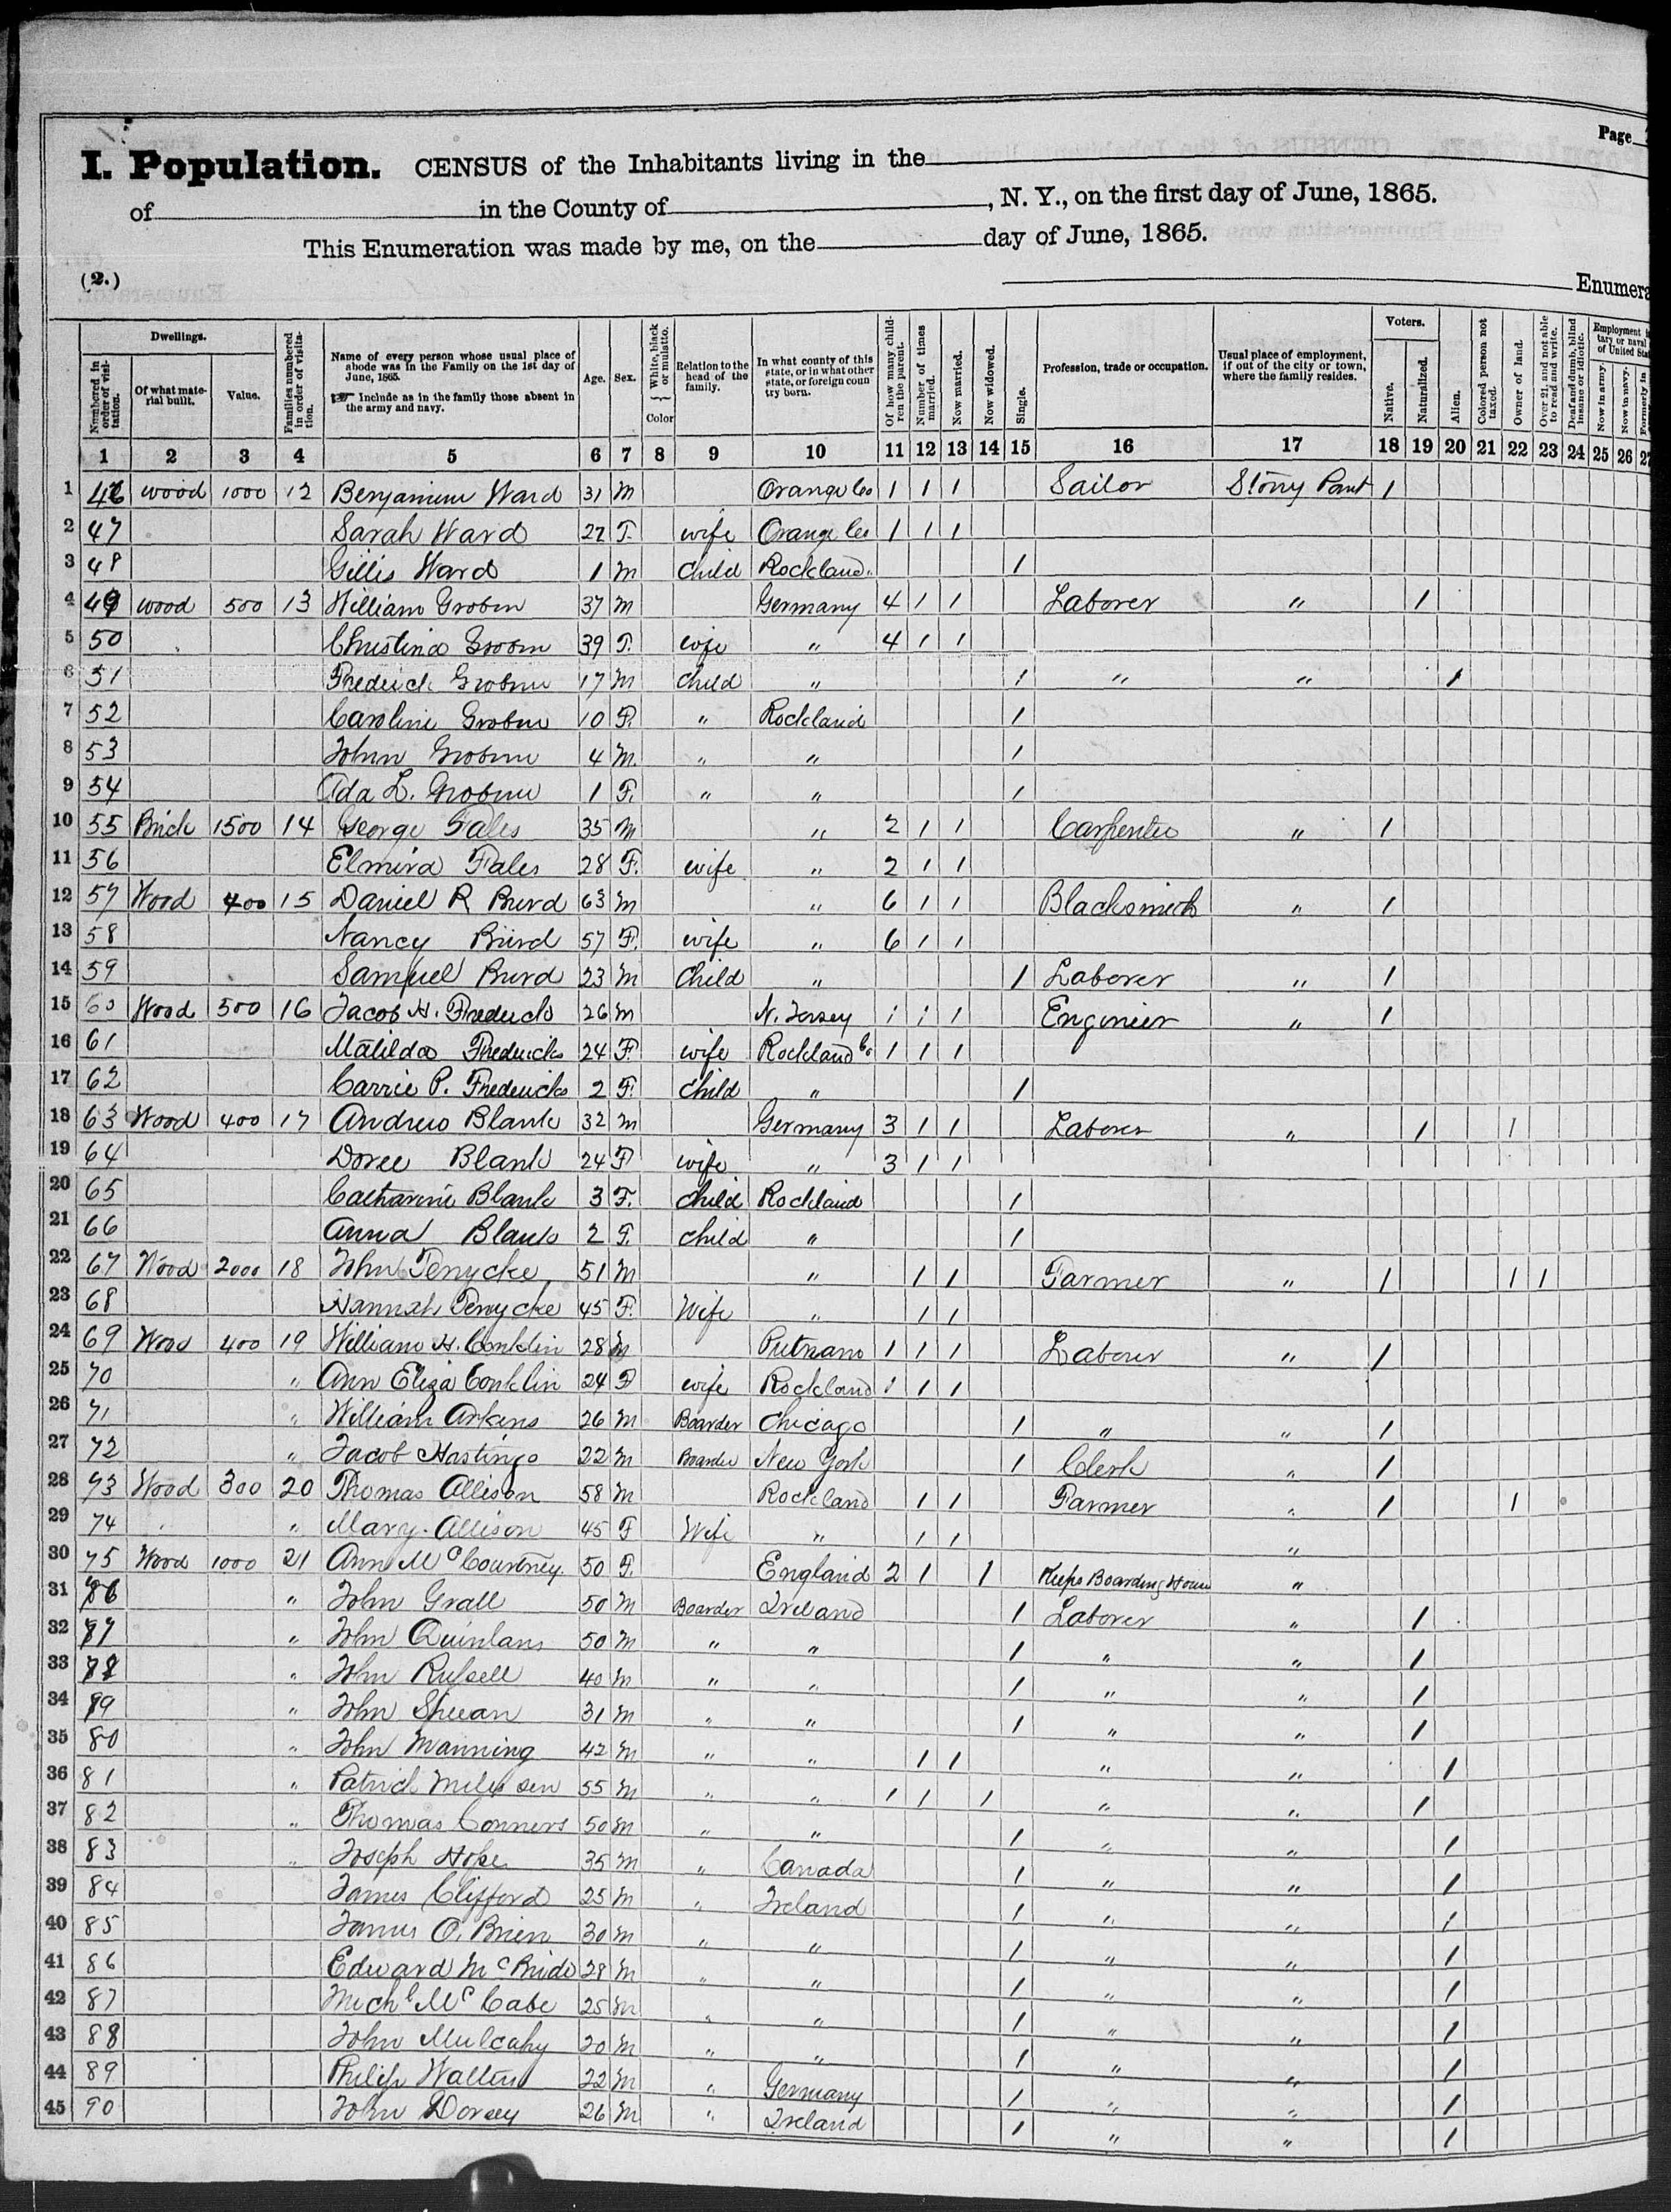 Page
I. Population. CENSUS of the Inhabitants living in the
of in the County of , N. Y., on the first day of June, 1865.
This Enumeration was made by me, on the day of June, 1865.
(2.) Enumera
Dwellings. Voters. Employment
Numbered in order of visitation. Of what material built. Value. Families numbered in order of visitation. Name of every person whose usual place of abode was in the Family on the 1st day of June, 1865. Include as in the family those absent in the army and navy. Age. Sex. White, black or mulatto. Color Relation to the head of the family. In what county of this state, or in what other state, or foreign coun try born. Of how many children the parent. Number of times married. Now married. Now widowed. Single. Profession, trade or occupation. Usual place of employment, if out of the city or town, where the family resides. Native. Naturalized. Alien. Colored person not taxed. Owner of land. Over 21 and not able to read and write. Deaf and dumb, blind insane or idiotic. tary or naval of United Sta Now in army. Now in navy. Formerly in
1 2 3 4 5 6 7 8 9 10 11 12 13 14 15 16 17 18 19 20 21 22 23 24 25 26 27
1 46 wood 1000 12 Benjamin Ward 31 M Orange Co 1 1 1 Sailor Stony Pant 1
2 47 Sarah Ward 27 F. wife Orange Co 1 1 1
3 48 Gillis Ward 1 M Child Rockland. 1
4 49 wood 500 13 William Grobm 37 M Germany 4 1 1 Laborer " 1
5 50 Christina Grobm 39 F. wife " 4 1 1
6 51 Frederick Grobm 17 M Child " 1 " " 1
7 52 Caroline Grobm 10 F. " Rockland 1
8 53 John Grobm 4 M. " " 1
9 54 Ada L. Grobm 1 F. " " 1
10 55 Brick 1500 14 George Fales 35 M " 2 1 1 Carpenter " 1
11 56 Elmira Fales 28 F. wife " 2 1 1
12 57 Wood 400 15 Daniel R Burd 63 M " 6 1 1 Blacksmith " 1
13 58 Nancy Burd 57 F. wife " 6 1 1
14 59 Samuel Burd 23 M Child " 1 Laborer " 1
15 60 Wood 500 16 Jacob H. Fredericks 26 M N. Jersey 1 1 1 Engineer " 1
16 61 Matilda Fredericks 24 F. wife Rockland Co 1 1 1
17 62 Carrie P. Fredericks 2 F. Child " 1
18 63 Wood 400 17 Andrew Blank 32 M Germany 3 1 1 Laborer " 1 1
19 64 Doree Blank 24 F wife " 3 1 1
20 65 Catharine Blank 3 F. Child Rockland 1
21 66 Anna Blank 2 F. Child " 1
22 67 Wood 2000 18 John Tenycke 51 M " 1 1 Farmer " 1 1 1
23 68 Hannah Tenycke 45 F. Wife " 1 1
24 69 Wood 400 19 William H. Conklin 28 M Putnam 1 1 1 Laborer " 1
25 70 " Ann Eliza Conklin 24 F wife Rockland 1 1 1
26 71 " William Arkins 26 M Boarder Chicago 1 " " 1
27 72 " Jacob Hastings 22 M Boarder New York 1 Clerk " 1
28 73 Wood 300 20 Thomas Allison 58 M Rockland 1 1 Farmer " 1 1
29 74 " Mary Allison 45 F Wife " 1 1 "
30 75 Wood 1000 21 Ann McCourtney 50 F. England 2 1 1 Keeps Boarding House "
31 76 " John Grall 50 M Boarder Ireland 1 Laborer " 1
32 77 " John Quinlans 50 M " " 1 " " 1
33 78 " John Russell 40 M " " 1 " " 1
34 79 " John Sheean 31 M " " 1 " " 1
35 80 " John Manning 42 M " " 1 1 " " 1
36 81 " Patrick Miles sen 55 M " " 1 1 1 " " 1
37 82 " Thomas Conners 50 M " " 1 " " 1
38 83 " Joseph Hope 35 M " Canada 1 " " 1
39 84 James Clifford 25 M " Ireland 1 " " 1
40 85 James O. Brien 30 M " " 1 " " 1
41 86 Edward McBride 28 M " " 1 " " 1
42 87 Michl McCabe 25 M " " 1 " " 1
43 88 John Mulcahy 20 M " " 1 " " 1
44 89 Philip Walters 22 M " Germany 1 " " 1
45 90 John Dorsey 26 M " Ireland 1 " " 1